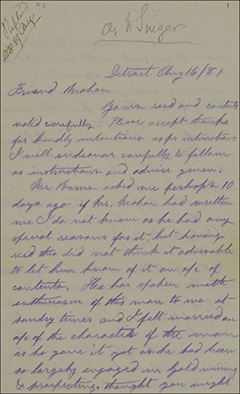 Replied
Detroit Aug 16/81
Friend Mahan
Yours recd and contents
noted carefully. Please accept thanks
for kindly intentions
I will endeavor carefully to follow
as instructions and advise given.
Mr Burns asked me perhaps 10
days ago if Mr. Mahan had written
me I do not know as he had any
special reasons for it, but having
recd this did not think it advisable
to let him know of it on a/c of
contents. He has spoken with
enthusiasm of this man to me at
sundry times and I felt worried on
a/c of the character of the man
as he gave it yet as he had been
so largely engaged in Gold mining
& prospecting, thought you might